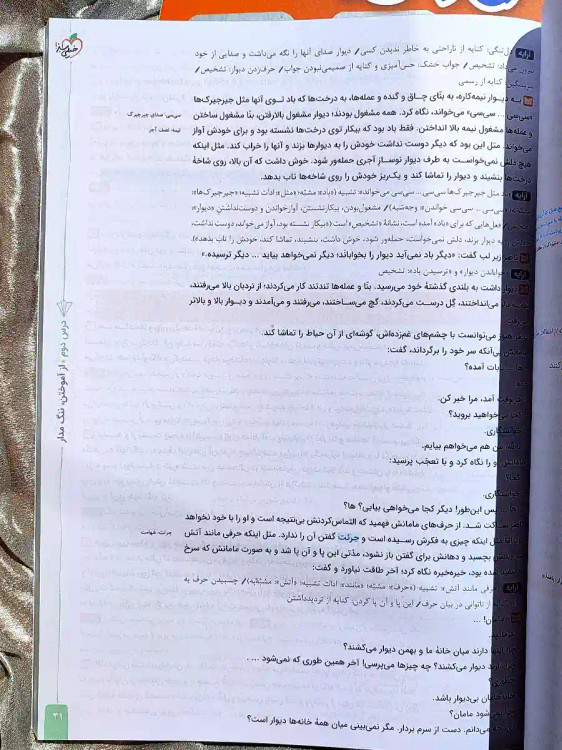 خیلی سبز
آرایه دل‌تنگی: کنایه از ناراحتی به خاطر ندیدن کسی/ دیوار صدای آنها را نگه می‌داشت و صدایی از خود
بیرون می‌داد: تشخیص/ جواب خشک: حس‌آمیزی و کنایه از صمیمی‌نبودن جواب/ حرف‌زدن دیوار: تشخیص/
کنایه از رسمی
به دیـوار نیمه‌کاره، به بنّای چـاق و گنده و عمله‌ها، به درخت‌ها که باد تـوی آنها مثل جیرجیرک‌ها
«سی‌سی ... سی‌سی» می‌خواند، نگاه کرد. همه مشغول بودند؛ دیوار مشغول بالارفتن، بنّا مشغول ساختن
و عمله‌ها مشغول نیمه بالا انداختن. فقط باد بود که بیکار توی درخت‌ها نشسته بود و برای خودش آواز
می‌خواند. مثل این بود که دیگر دوست نداشت خودش را به دیوارها بزند و آنها را خراب کند. مثل اینکه
هیچ دلش نمی‌خواست به طرف دیوار نوسـازِ آجری حمله‌ور شود. خوش داشت که آن بالا، روی شاخهٔ
درخت‌ها بنشیند و دیوار را تماشا کند و یک‌ریز خودش را روی شاخه‌ها تاب بدهد.
سی‌سی: صدای جیرجیرک
نیمه: نصف آجر
آرایه باد مثل جیرجیرک‌ها سی‌سی ... سی‌سی می‌خواند: تشبیه («باد»: مشبّه؛ «مثل»: ادات تشبیه؛ «جیرجیرک‌ها»:
«سی‌سی ... سی‌سی خواندن»: وجه‌شبه)/ مشغول‌بودن، بیکارنشستن، آوازخواندن و دوست‌نداشتنِ «دیوار»:
فعل‌هایی که برای «باد» آمده است، نشانهٔ «تشخیص» است («بیکار نشسته بود، آواز می‌خواند، دوست نداشت،
به دیوار بزند، دلش نمی‌خواست، حمله‌ور شود، خوش داشت، بنشیند، تماشا کند، خودش را تاب بدهد).
ناصر زیر لب گفت: «دیگر باد نمی‌آید دیوار را بخواباند؛ دیگر نمی‌خواهد بیاید ... دیگر ترسیده.»
آرایه خواباندن دیوار» و «ترسیدن باد»: تشخیص
دیـوار داشت به بلندی گذشتهٔ خود می‌رسید. بنّا و عمله‌ها تندتند کار می‌کردند؛ از نردبان بالا می‌رفتند،
بالا می‌انداختند، گِل درسـت می‌کردند، گچ می‌سـاختند، می‌رفتند و می‌آمدند و دیـوار بالا و بالاتر
می‌توانست با چشم‌های غم‌زده‌اش، گوشه‌ای از آن حیاط را تماشا کُند.
بی‌آنکه سر خود را برگرداند، گفت:
آمده؟
آمد، مرا خبر کن.
می‌خواهید بروید؟
هم می‌خواهم بیایم.
مامانش او را نگاه کرد و با تعجّب پرسید:
این‌طور! دیگر کجا می‌خواهی بیایی؟ ها؟
ساکت شـد. از حرف‌های مامانش فهمید که التماس‌کردنش بی‌نتیجه است و او را با خود نخواهد
مثل اینکه چیزی به فکرش رسـیده است و جرئت گفتن آن را ندارد. مثل اینکه حرفی مانند آتش
بچسبد و دهانش برای گفتن باز نشود، مدّتی این پا و آن پا شد و به صورت مامانش که سرخ
شده بود، خیره‌خیره نگاه کرد؛ آخر طاقت نیاورد و گفت:
جرئت: شهامت
آرایه حرفی مانند آتش: تشبیه («حرف»: مشبّه؛ «مانند»: ادات تشبیه؛ «آتش»: مشبّه‌به)/ چسبیدن حرف به
کنایه از ناتوانی در بیان حرف/ این پا و آن پا کردن: کنایه از تردیدداشتن
مامان! ...
دارند میان خانهٔ ما و بهمن دیوار می‌کشند؟
دیوار می‌کشند؟ چه چیزها می‌پرسی! آخر همین طوری که نمی‌شود ... .
بی‌دیوار باشد.
نمی‌شود مامان؟
نمی‌دانم. دست از سرم بردار. مگر نمی‌بینی میان همهٔ خانه‌ها دیوار است؟
درس دوم • از آموختن، ننگ مدار
۳۱